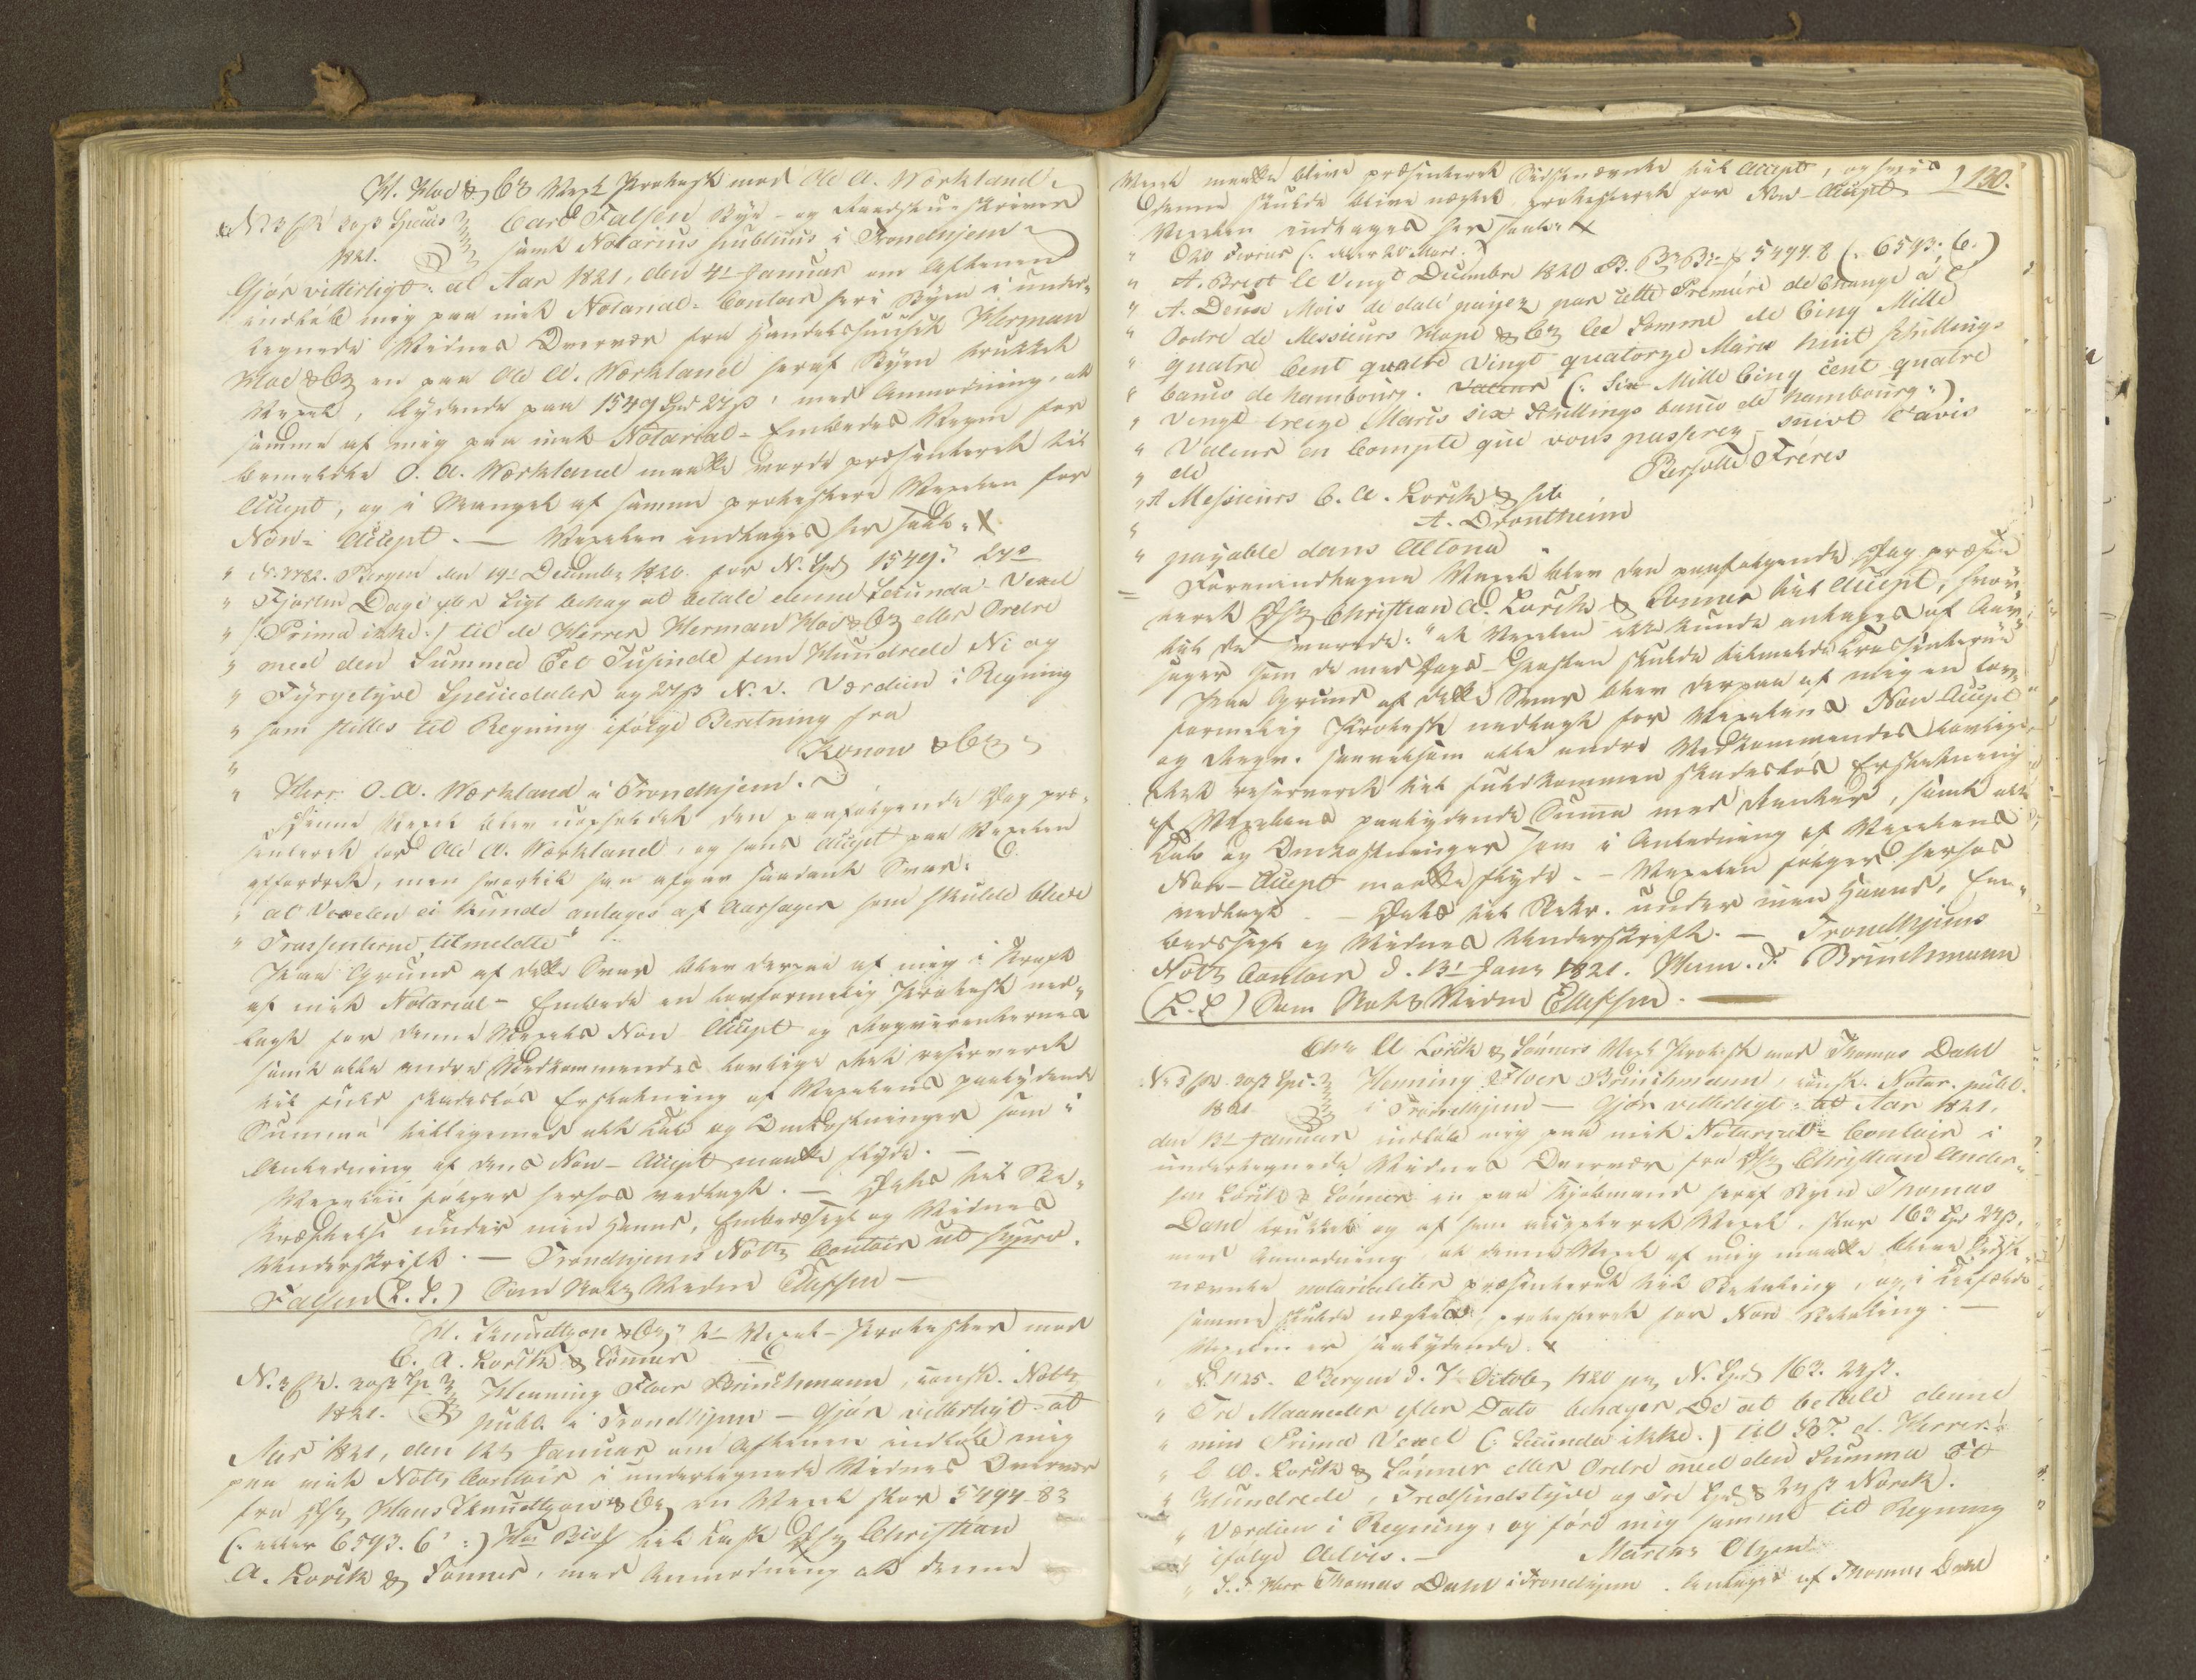 H. Kloe & Co Vexl Protest mod Ole A. Workland
No 3 ß 20 ß Species Carl Falsen Bye- og Raadstueskriver
1821. samt Notarius publicus i Trondhjem
Gjør vitterligt: at Aar 1821, den 4de Januar om Aftenen
indkom mig paa mit Notarial-Contoir her i Byen i under-
tegnede Vidnes Overvær fra Handelshuuset Herman
Kloe & Co en paa Ole A. Workland heraf Byen trukket
Vexel, lydende paa 1549 Spd 27 ß, med Anmodning, at
samme af mig paa mit Notarial-Embedes Vegne for
bemeldte O. A. Workland maatte vorde præsenteret til
Accept, og i Mangel af samme protestere Vexelen for
Non-Accept. — Vexelen indtages her saal: X
" No. 1782. Bergen den 19de Decembr 1820. for N. Spd 1549" 27 ß
" Fjorten Dage efter Sigt behag at betale denne Secunda Vexel
" (: Prima ikke :) til de Herrer Herman Kloe & Co eller Ordre
" med den Summa Eet Tusinde fem Hundrede Ni og
" Fyrgetyve Speciedaler og 27 ß N. V. Værdien i Regning
" som stilles til Regning ifølge Beretning fra
" Konow & Co
" Herr O. A. Workland i Trondhjem.
Denne Vexel blev uopholdet den paafølgende Dag præ-
senteret for Ole A. Workland, og hans Accept paa Vexelen
affordret, men hvortil han afgav saadant Svar:
" at Vexelen ei kunde antages af Aarsager som skulde blive
" Trassenterne tilmeldte"
Paa Grund af dette Svar blev derpaa af mig i Kraft
af mit Notarial-Embede en lovformelig Protest ned-
lagt for denne Vexels Non Accept og Reqvirenternes
samt alle andre Vedkommendes lovlige Ret reserveret
til fuld skadesløs Erstatning af Vexelens paalydende
Summa tilligemed alt Tab og Omkostninger som i
Anledning af dens Non-Accept maatte flyde. —
Vexelen følger herhos vedlagt. — Dette til Be-
kræftelse under min Haand, Embedssegl og Vidnes
Underskrift. — Trondhjems Notr Contoir ut supra.
Falsen (L. S.) Som Notr Vidne Ellefsen —
H. Knudtzon & Co 2de Vexel-Protester mod
C. A. Lorck & Sønner
No. 3 ß 20 ß Sp Henning Floer Brinchmann, const. Notr
1821. publ. i Trondhjem — Gjør vitterligt at
Aar 1821, den 12te Januar om Aftenen indkom mig
paa mit Notr Contoir i undertegnede Vidnes Overvær
fra Hr Hans Knudtzon & Co en Vexel stor 5494-8 ß
(: eller 6593. 6 :) Hbr Bco til Last Hr Christian
A. Lorck & Sønner, med Anmodning at denne
130.
Vexel maatte blive præsenteret Sidstnævnte til Accept, og hvis
denne skulde blive nægtet protesteret for Non-Accept
Vexelen indtages her saal: X
" A. Brest le Vingt Decembre 1820 B. 5494. 8 (: 6593. 6 :)
" A. Deux Mois de date payez par cette Premiére de Change à l'
" Ordre de Messieurs Kope & Co la Somme de Cinq Mille
" quatre Cent quatre Vingt quatorze Marcs huit Schillings
" banco de hambourg. Valeur (: Six Mille Cinq cent quatre
" Vingt treize Marcs six Schillings banco de hambourg :)
" Valeur en Compte que vous passerez suivt l'avis
" de Bersolle Fréres
" A Messieurs C. A. Lorck & fils
" A. Drontheim
" payable dans Altona
= Foranindtagne Vexel blev den paafølgende Dag præsen-
teret Hr Christian A. Lorck & Sønner til Accept, hvor-
til de svarede: "at Vexelen ikke kunde antages af Aar-
sager som de med Dags-Posten skulde tilmelde Trassenterne"
Paa Grund af dette Svar blev derpaa af mig en lov-
formelig Protest nedlagt for Vexelens Non-Accept
og Reqv. saavelsom alle andre Vedkommendes lovlige
Ret reserveret til fuldkommen skadesløs Erstatning
af Vexelens paalydende Suma med Renter, samt alt
Tab og Omkostninger som i Anledning af Vexelens
Non-Accept maatte flyde. — Vexelen følger herhos
vedlagt. — Dette til Bekr. under min Haand, Em-
bedssegl og Vidnes Underskrift. — Trondhjems
Notr Contoir d. 13de Janr 1821. Henn. F. Brinchmann
(L. S.) Som Notr Vidne Ellefsen. —
Chr A Lorck & Sønners Vexl Protest mod Thomas Dahl
No 3 ß 20 ß Spe. Henning Floer Brinchmann, const. Notar. publ.
1821 i Trondhjem — Gjør vitterligt: at Aar 1821,
den 13de Januar indkom mig paa mit Notarial-Contoir i
undertegnede Vidnes Overvær fra Hr Christian Ander-
sen Lorck & Sønner en paa Kjøbmand heraf Byen Thomas
Dahl trukket og af ham accepteret Vexel, stor 163 Spd 24 ß,
med Anmodning at denne Vexel af mig maatte blive Sidst-
nævnte notarialiter præsenteret til Betaling, og i Tilfælde
samme skulde nægtes, protesteret for Non Betaling. —
Vexelen er saalydende: X
" No 1125. Bergen d. 7 Octobr 1820 pr N. Spd 163. 24 ß.
" Tre Maaneder efter Dato behager De at betale denne
" min Prima Vexel (: Secunda ikke :) til S. T. d. Herrer:
" C. A. Lorck & Sønner eller Ordre med den Summa Et
" Hundrede, Tredsindstyve og Tre Spd & 24 ß Norsk.
" Værdien i Regning, og føre mig samme til Regning
" ifølge Advis. — Martin Olsen
" S. T. Herr Thomas Dahl i Trondhjem. Antaget af Thomas Dahl